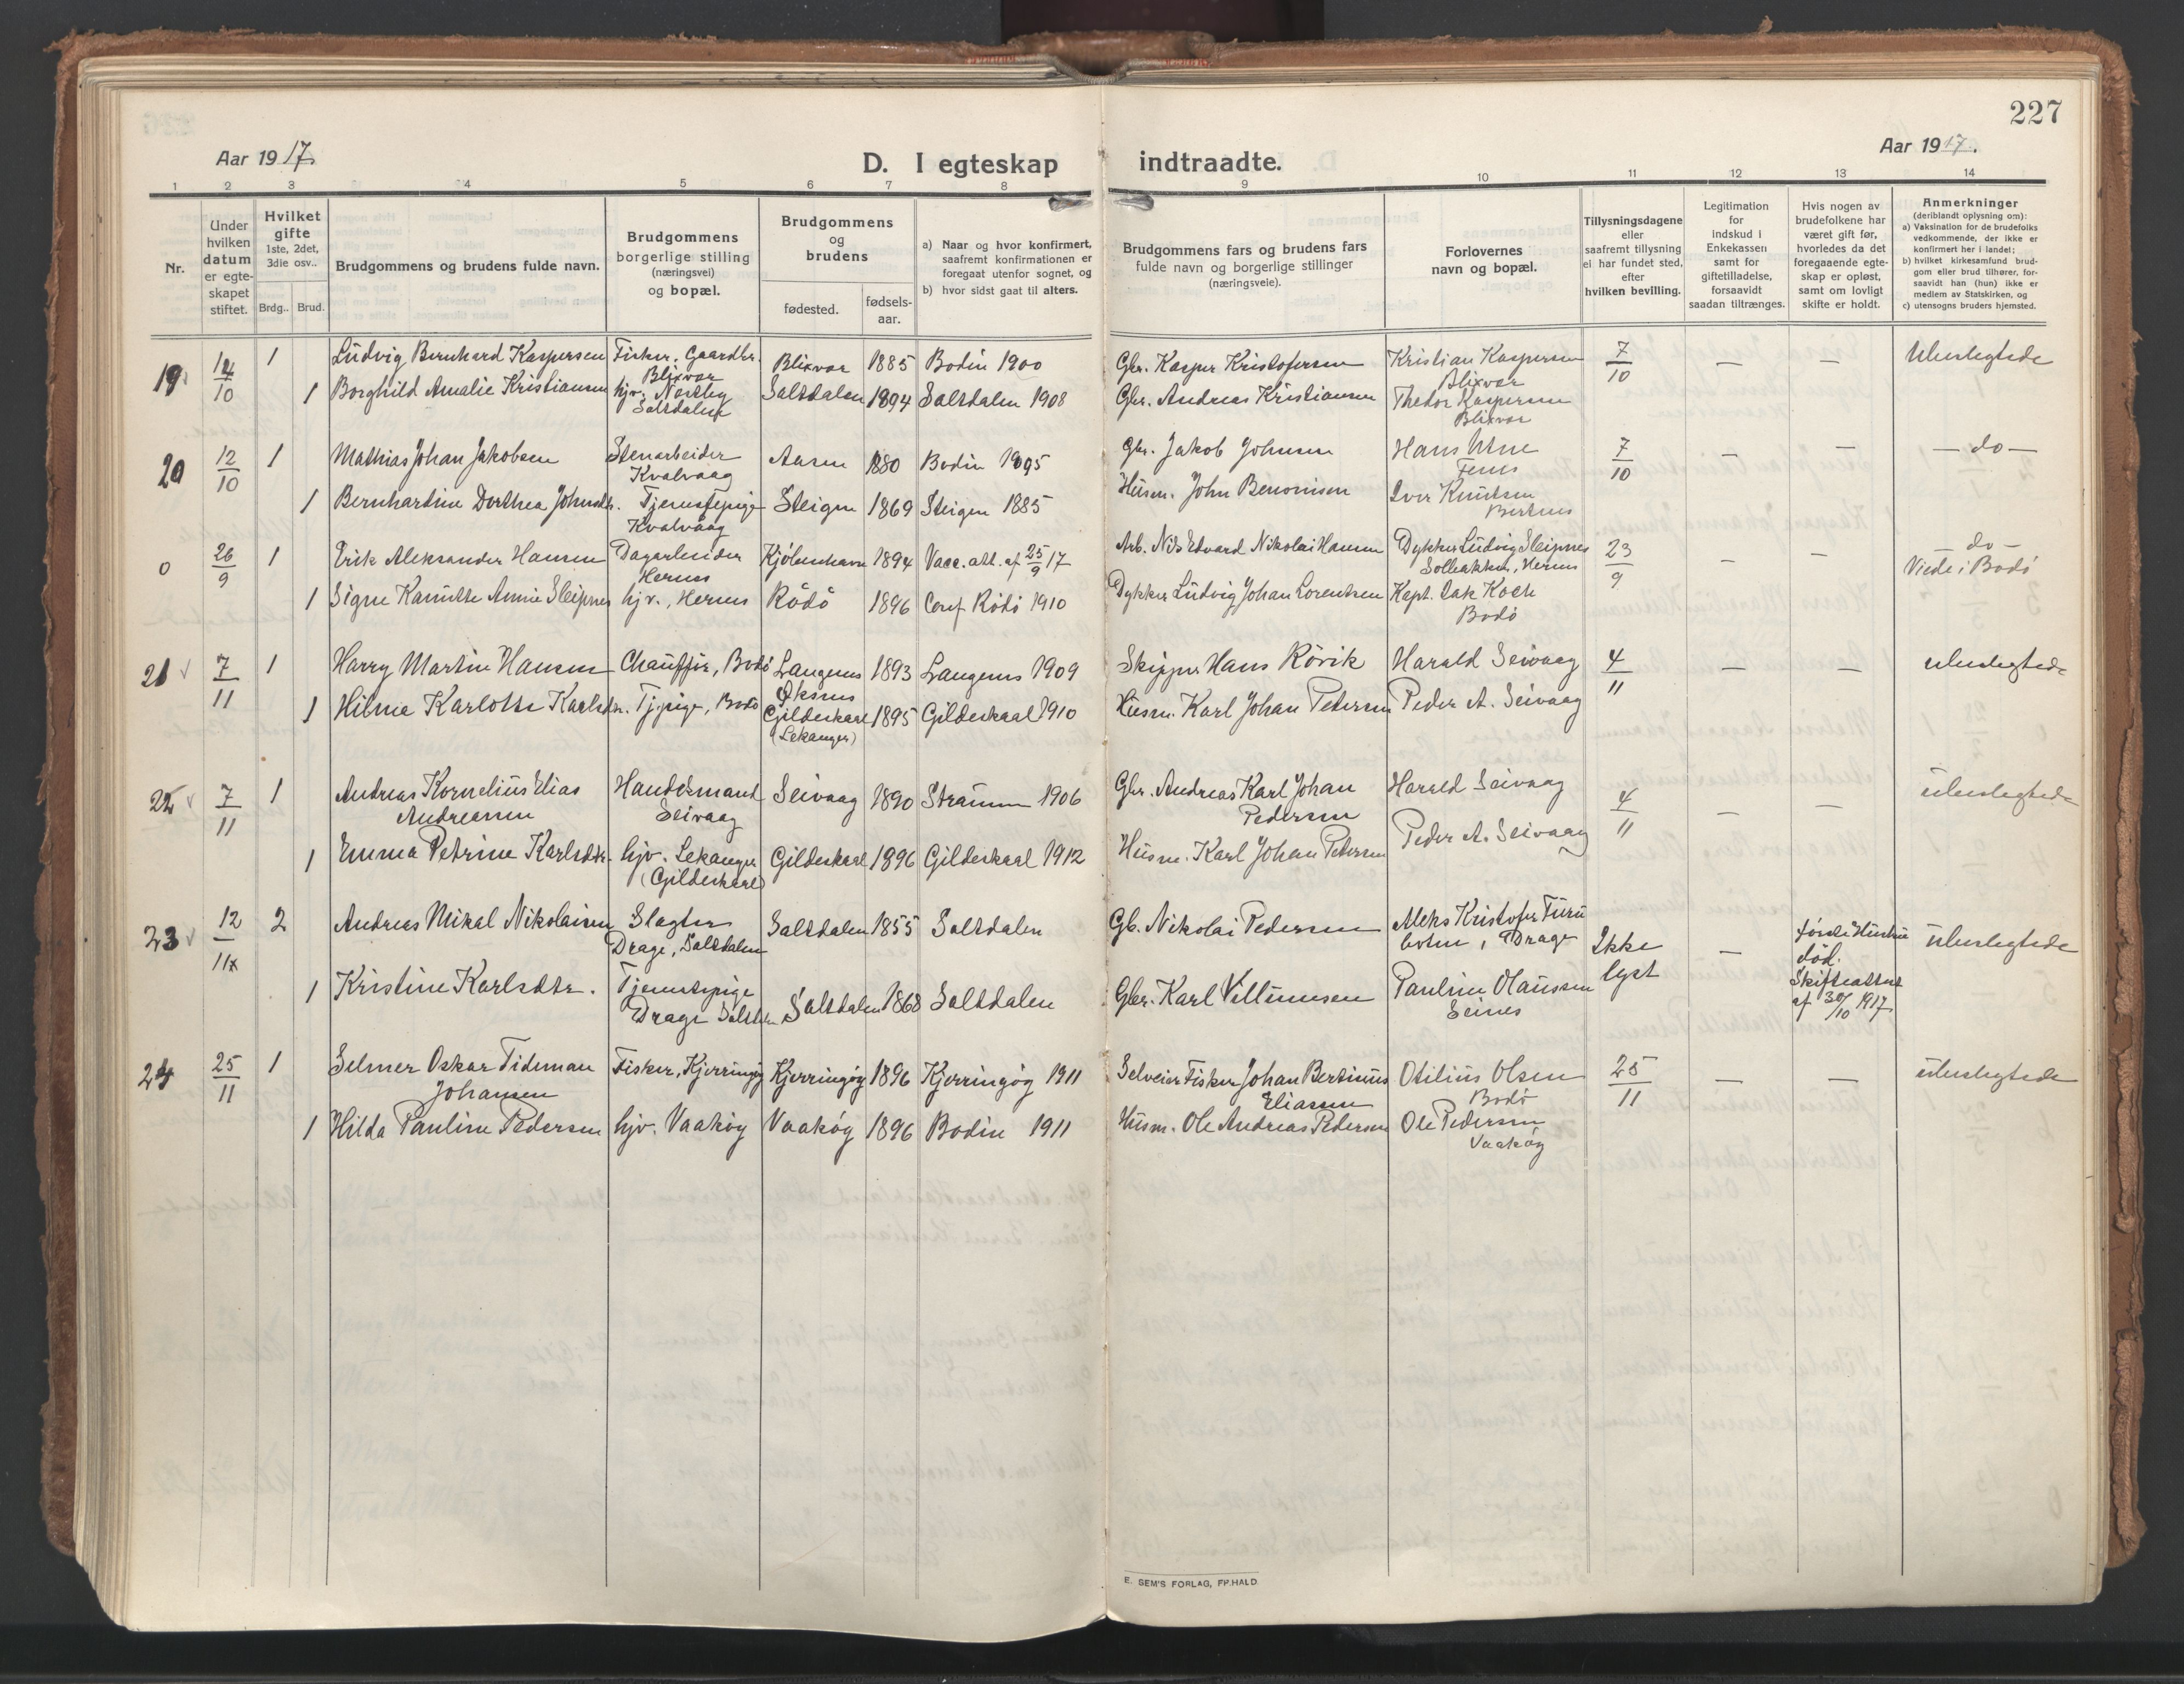 227
Aar 1917.
D. I egteskap indtraadte.
Aar 1917.
1 2 3 4 5 6 7 8 9 10 11 12 13 14
Nr.
Under hvilken datum er egteskapet stiftet.
Hvilket gifte 1ste, 2det, 3die osv..
Brdg.. Brud.
Brudgommens og brudens fulde navn.
Brudgommens borgerlige stilling (næringsvei) og bopæl.
Brudgommens og brudens
fødested. fødsels-aar.
a) Naar og hvor konfirmert, saafremt konfirmationen er foregaat utenfor sognet, og
b) hvor sidst gaat til alters.
Brudgommens fars og brudens fars fulde navn og borgerlige stillinger (næringsveie).
Forlovernes navn og bopæl.
Tillysningsdagene eller saafremt tillysning ei har fundet sted, efter hvilken bevilling.
Legitimation for indskud i Enkekassen samt for giftetilladelse, forsaavidt saadan tiltrænges.
Hvis nogen av brudefolkene har været gift før, hvorledes da det foregaaende egteskap er opløst, samt om lovligt skifte er holdt.
Anmerkninger (deriblandt oplysning om):
a) Vaksination for de brudefolks vedkommende, der ikke er konfirmert her i landet;
b) hvilket kirkesamfund brudgom eller brud tilhører, forsaavidt han (hun) ikke er medlem av Statskirken, og
c) utensogns bruders hjemsted.
19 14/10 1 Ludvig Bernhard Kaspersen Fisker. Gaardbr. Blixvær Blixvær 1885 Bodin 1900 Gbr. Kasper Kristofersen Kristian Kaspersen Blixvær 7/10 — — Ubeslegtede
1 Borghild Amalie Kristiansen hjv. Saltdalen Saltdalen 1894 Saltdalen 1908 Gbr. Andreas Kristiansen Thedor Kaspersen Blixvær
20 12/10 1 Mathias Johan Jakobsen Stenarbeider Kvalvaag Aasen 1880 Bodin 1895 Gbr. Jakob Johnsen Hans 7/10 — — — do —
1 Bernhardine Dorthea Johnsdtr. Tjenestepige Kvalvaag Steigen 1869 Steigen 1885 Husm. John Benonisen Iver Knutsen Bertnes
0 26/9 1 Erik Aleksander Hansen Dagarbeider Hernes Kjöbenhavn 1894 Vacc. att. af 25/9 17 Arb. Nils Edvard Nikolai Hansen Dykker Ludvig Sleipnes Solbakken, Hernes 23/9 — — — do — Viede i Bodö
1 Signe Kamille Annie Sleipnes hjv., Hernes Rödö 1896 Conf. Rödö 1910 Dykker Ludvig Johan Lorentsen Kapt. Isak Koch Bodö
21 7/11 1 Harry Martin Hansen Chauffør, Bodö Langenes Øksnes 1893 Langenes 1909 Skipper Hans Rörik Harald Seivaag 4/11 — — ubeslegtede
1 Hilma Karlotte Karlsdtr. Tj.pige, Bodö Gildeskaal (Lekanger) 1895 Gildeskaal 1910 Husm. Karl Johan Petersen Peder A. Seivaag
22 7/11 1 Andreas Kornelius Elias Andreassen Handelsmand Seivaag Seivaag 1890 Strømmen 1906 Gbr. Andreas Karl Johan Pedersen Harald Seivaag 4/11 — — ubeslegtede
1 Emma Petrine Karlsdtr. hjv. Lekanger (Gildeskaal) Gildeskaal 1896 Gildeskaal 1912 Husm. Karl Johan Petersen Peder A. Seivaag
23 12/11 2 Andreas Mikal Nikolaisen Slagter Drage, Saltdalen Saltdalen 1855 Saltdalen Gb. Nikolai Pedersen Aleks Kristofer Furubotn, Drage Ikke lyst — første Hustru död. Skifteattest af 30/10 1917 ubeslegtede
1 Kristine Karlsdtr. Tjenestepige Drage Saltdalen Saltdalen 1868 Saltdalen Gbr. Karl Villumsen Pauline Olaussen Seines
24 25/11 1 Selmer Oskar Tideman Johansen Fisker, Kjerringøy Kjerringøy 1896 Kjerringøy 1911 Selveier Fisker Johan Bertinus Eliassen Otilius Olsen Bodö 25/11 — — ubeslegtede
1 Hilda Pauline Pedersen hjv. Vaaköy Vaaköy 1896 Bodin 1911 Husm. Ole Andreas Pedersen Ole Pedersen Vaaköy
E. SEM'S FORLAG, FR.HALD